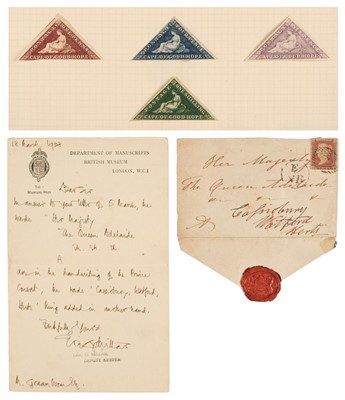 POSTAGE
CAPE OF GOOD HOPE
POSTAGE
CAPE OF GOOD HOPE
POSTAGE
CAPE OF GOOD HOPE
POSTAGE
CAPE OF GOOD HOPE
12 March
DEPARTMENT OF MANUSCRIPTS
BRITISH MUSEUM
LONDON, W.C.1
Dear Sir
In answer to your letter of 5 March, the
words "Her Majesty
The Queen Adelaide
are in the handwriting of the Prince
Consort, the words "Cassiobury, Watford,
Herts" being added in another hand.
Faithfully Yours
Eric G. Millar
ERIC G. MILLAR
DEPUTY KEEPER
Her Majesty
The Queen Adelaide
Cassiobury
Watford
Herts